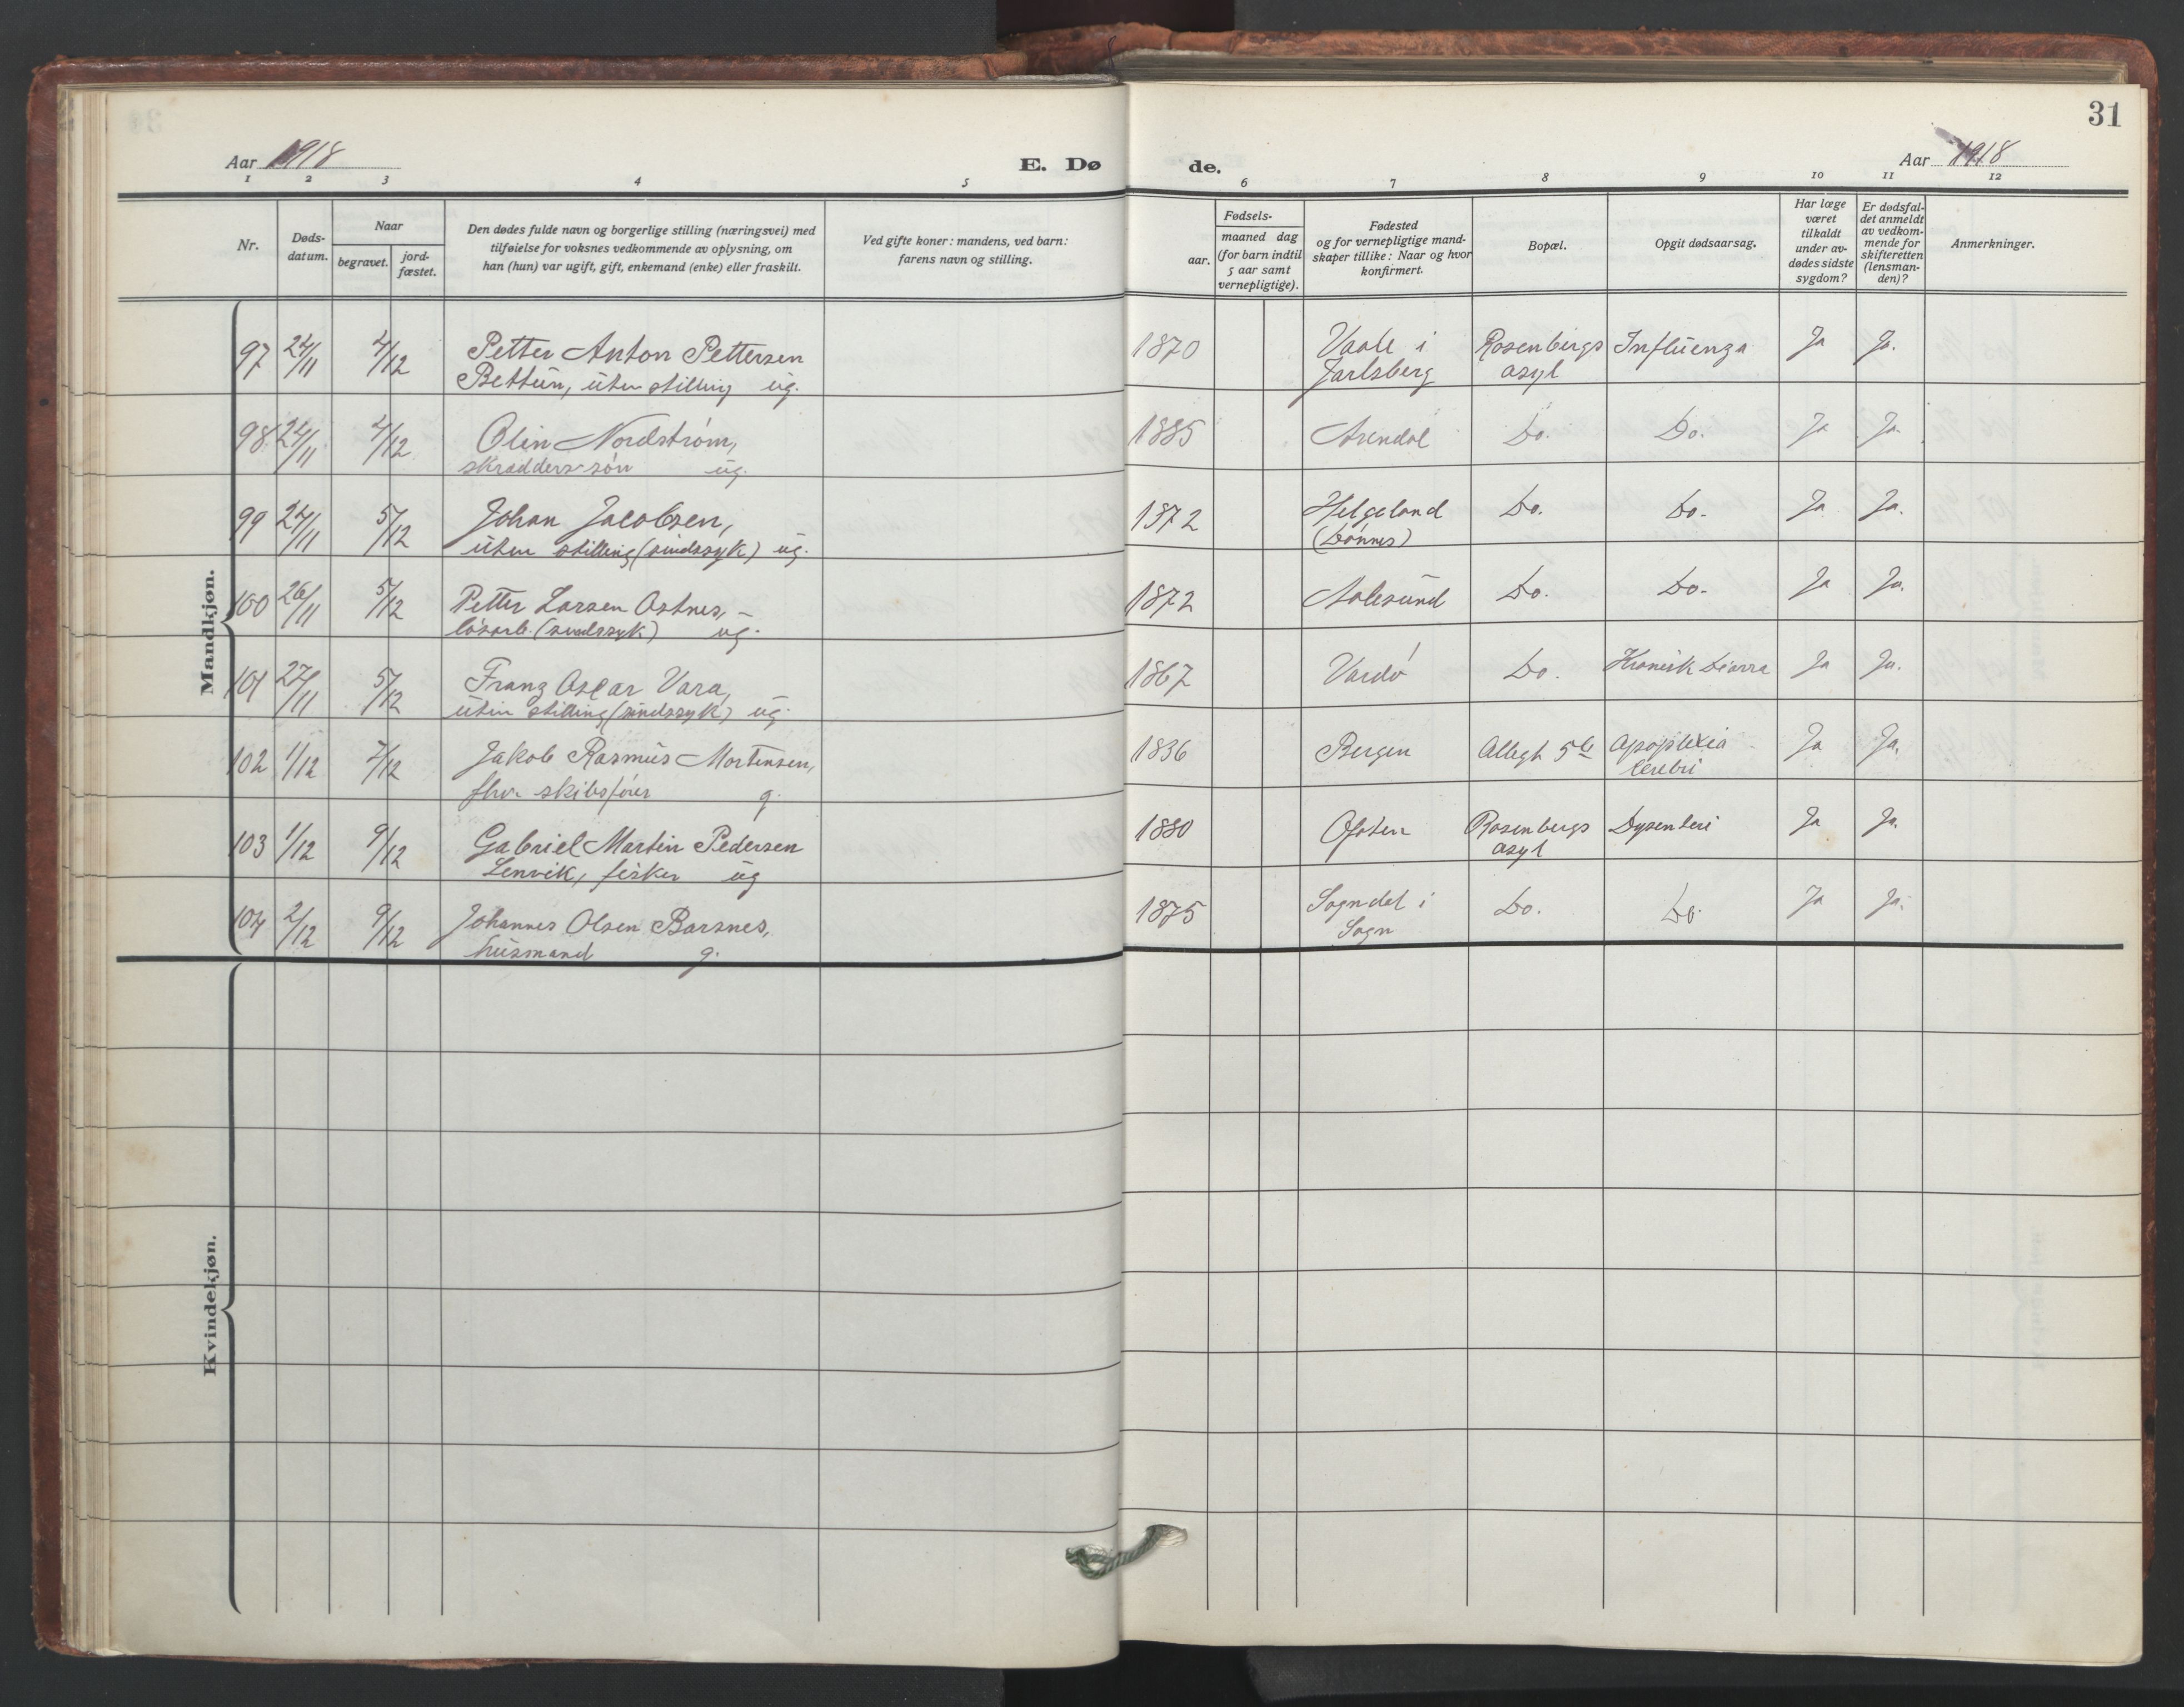 31
Aar 1918
E. Dø
de.
Aar 1918
1 2 3 4 5 6 7 8 9 10 11 12
Nr.
Døds-
datum.
Naar
begravet.
jord-
fæstet.
Den dødes fulde navn og borgerlige stilling (næringsvei) med
tilføielse for voksnes vedkommende av oplysning, om
han (hun) var ugift, gift, enkemand (enke) eller fraskilt.
Ved gifte koner: mandens, ved barn:
farens navn og stilling.
Fødsels-
aar.
maaned dag
(for barn indtil
5 aar samt
vernepligtige).
Fødested
og for vernepligtige mand-
skaper tillike: Naar og hvor
konfirmert.
Bopæl.
Opgit dødsaarsag.
Har læge
været
tilkaldt
under av-
dødes sidste
sygdom?
Er dødsfal-
det anmeldt
av vedkom-
mende for
skifteretten
(lensman-
den)?
Anmerkninger.
Mandkjøn.
97 24/11 4/12 Petter Anton Pettersen 1870 Vaale i Rosenbergs Influenza Ja Ja.
Bettum, uten stilling ug. Jarlsberg asyl
98 24/11 4/12 Olin Nordstrøm, 1885 Arendal Do. Do. Ja Ja.
skrædders-søn ug.
99 24/11 5/12 Johan Jacobsen, 1872 Helgeland Do. Do. Ja Ja.
uten stilling (sindssyk) ug. (Dønnes)
100 26/11 5/12 Petter Larsen Ostnes, - 1872 Aalesund Do. Do. Ja Ja.
løsarb. (sindssyk) ug.
101 27/11 5/12 Franz Oscar Vara, 1867 Vardø Do. Kronisk Diarra Ja Ja.
uten stilling (sindssyk) ug.
102 1/12 7/12 Jakob Rasmus Mortensen, 1836 Bergen Allegt 5b Apoplexia Ja Ja.
fhv. skibsfører g. cerebri
103 1/12 9/12 Gabriel Martin Pedersen 1880 Ofoten Rosenbergs Dysenteri Ja Ja.
Lenvik, fisker ug asyl
104 2/12 9/12 Johannes Olsen Barsnes, 1875 Sogndal i Do. Do. Ja Ja.
husmand g. Sogn
Kvindekjøn.